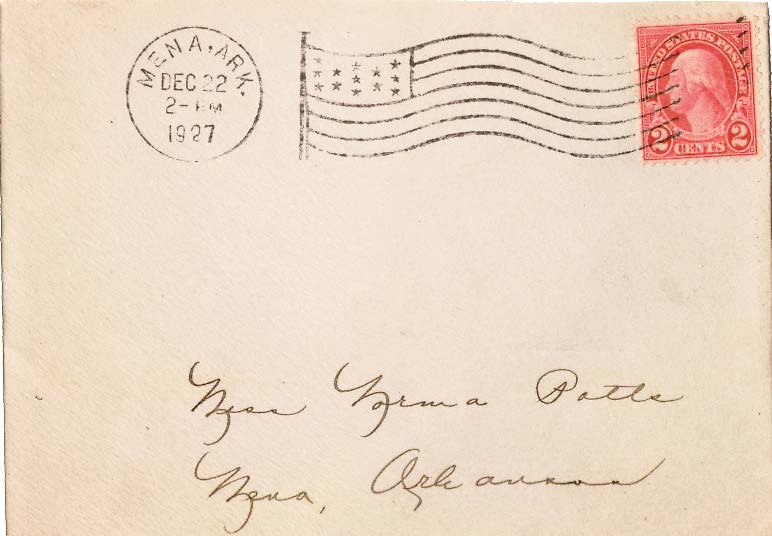 MENA, ARK.
DEC 22
2- PM
1927
UNITED STATES POSTAGE
2 CENTS 2
Miss Norma Potts
Mena, Arkansas